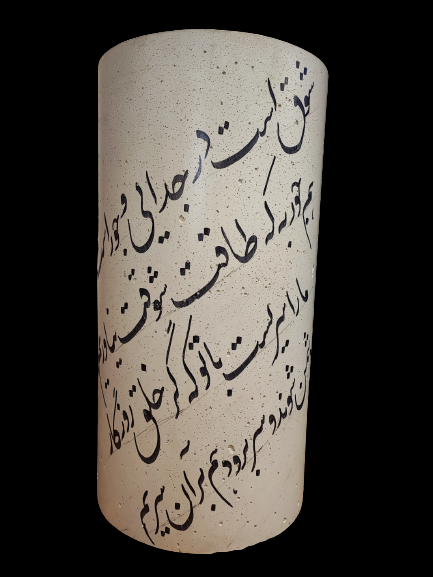 شوق است در جدایی و جور است
هم جور به که طاقت شوقت نیاوریم
ما را سریست با تو که گر خلق روزگار
دشمن شوند و سر برود هم بر آن سریم